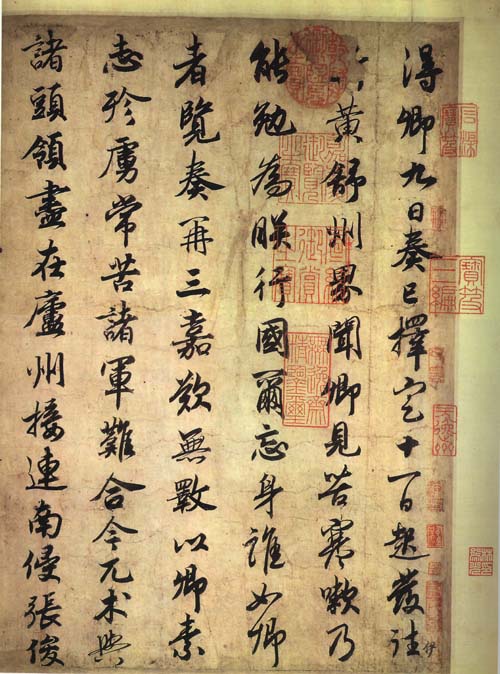 得卿九日奏已擇定十一日起發往
黃舒州界聞卿見苦寒嗽乃
能勉為朕行國爾忘身誰如卿
者覽奏再三嘉歎無斁以卿素
志殄虜常苦諸軍難合今兀朮與
諸頭領盡在廬州接連南侵張俊